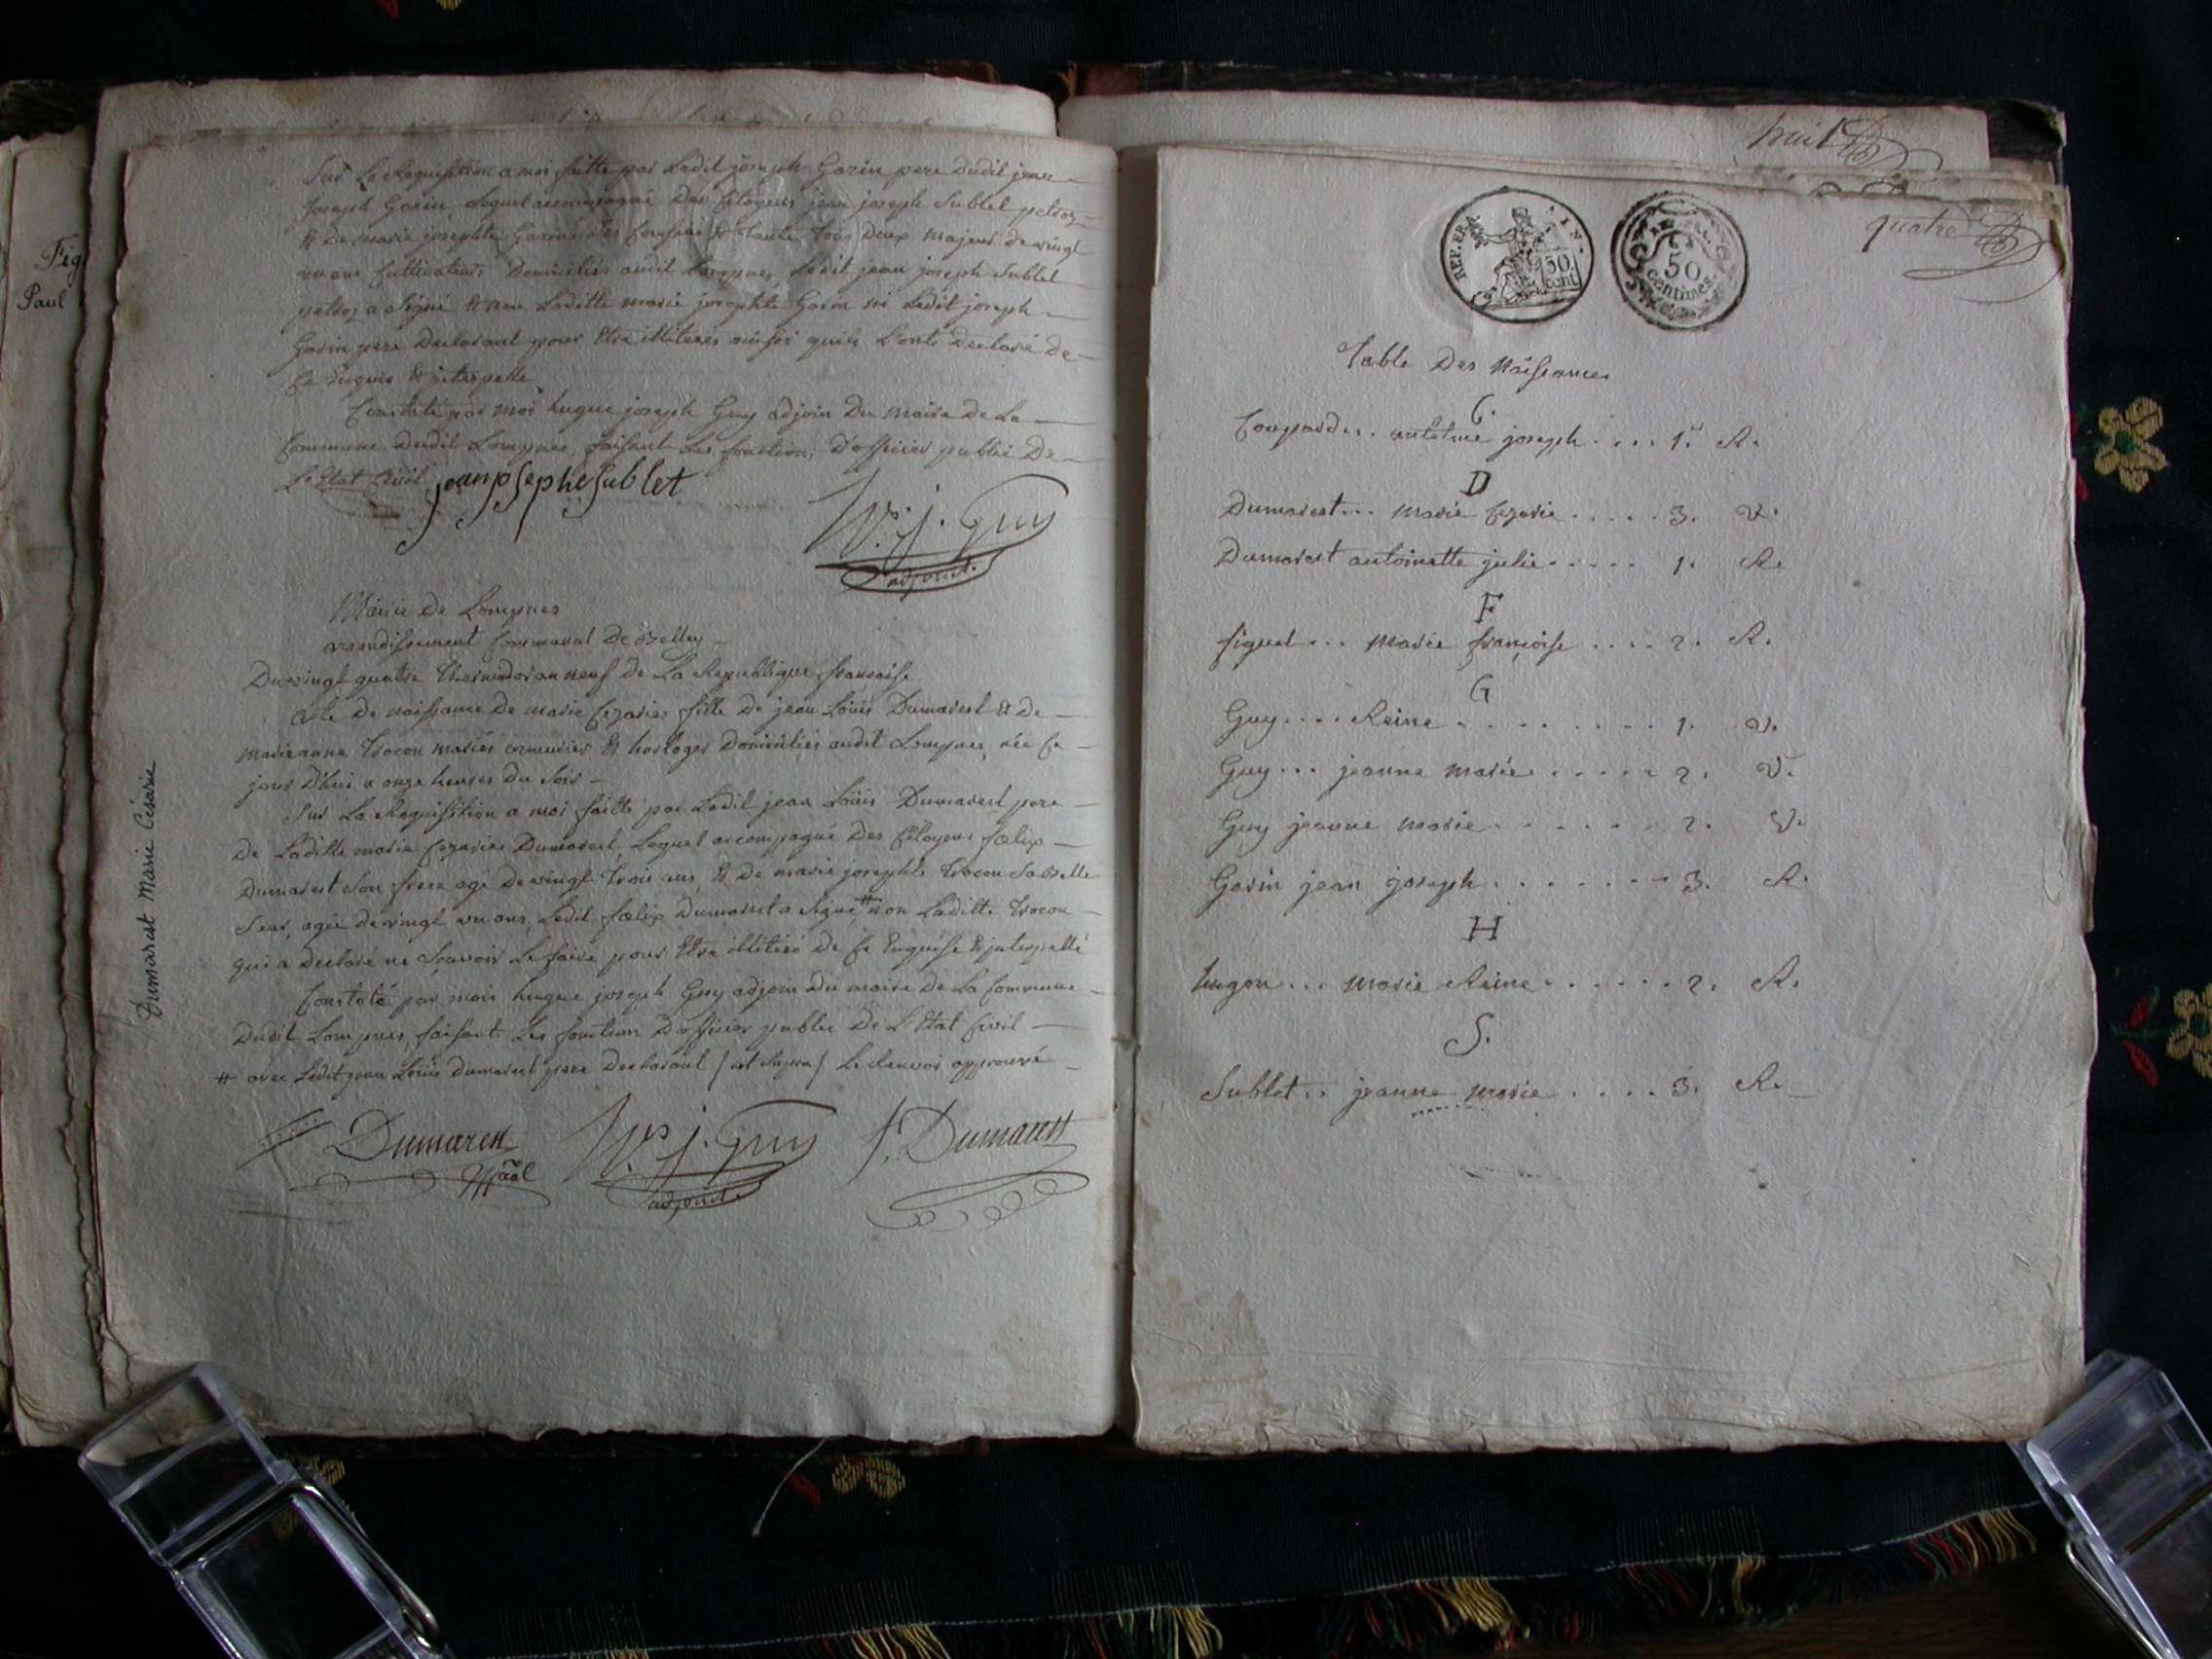 Fig
Paul
Sur la Requisition a moi faitte par Ledit joseph Gorin pere dudit jean
joseph Gorin, Lequel accompagné Des Citoyens jean joseph Sublet
& De marie josephte Gorin Tous Deux majeurs de vingt
un ans Cultivateurs Domiciliés audit Lompnes, Ledit jean joseph Sublet
a Signé & non Laditte marie josephte Gorin ni Ledit joseph
Gorin pere Declarant pour Etre illiteres ainsi quils L'ont Declaré de
Ce Enquis & interpellé
Constaté par moi hugue joseph Guy adjoin Du maire De La
Commune Dudit Lompnes, faisant Les fonction D'officier public De
L'Etat Civil
jeanpsephesublet
h. j. Guy
adjoint.
Mairie De Lompnes
arondissement Communal De Belley
Du vingt quatre Thermidor an neuf de La Republique francoise
Acte De naissance De marie Cezarie fille De jean Louis Dumarest & de
marie anne Trocon mariés armurier & horloger Domiciliés audit Lompnes, née Ce
jour D'hui a onze heures Du Soir
Sur La Requisition a moi faitte par Ledit jean Louis Dumarest pere
De Laditte marie Cezarie Dumarest, Lequel accompagné Des Citoyens fœlix
Dumarest Son frere agé De vingt Trois ans, & De marie josephte Trocon Sa Belle
Seur, agée De vingt un ans, Ledit fœlix Dumarest a Signé # non Laditte Trocon
qui a Declaré ne Scavoir Le faire pour Etre illitéré De Ce Enquise & interpellé
Constaté par moi hugue joseph Guy adjoin Du maire De La Commune
Dudit Lompnes faisant Les fonction D'officier public De L'Etat Civil
# avec Ledit jean Louis Dumarest pere Declarant / ut Supra / Le Renvoi approuvé
Dumarest
h. j. Guy
adjoint.
f. Dumarest
Dumarest Marie Césarie
huit
quatre
REP. FRA. TIN.
50 cent
50 centimes
Table Des Naissances
C.
antelme joseph .... 1. R.
D
Dumarest... marie Cezarie ..... 3. V.
Dumarest antoinette julie ..... 1. R.
F
figuet ... Marie françoise .... 2. R.
G
Guy .... Reine ........ 1. V.
Guy ... jeanne marie ..... 2. V.
Guy jeanne marie ...... 2. V.
Gorin jean joseph ....... 3. R.
H
hugon ... marie Reine ...... 2. R.
S.
Sublet .. jeanne marie .... 3. R.